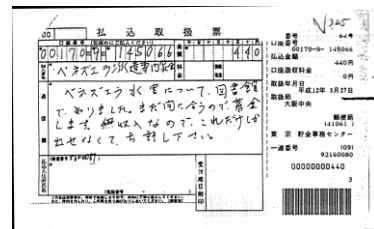 N325
00
払込取扱票
00170=9=145066
440
ベネズエラ
ベネズエラ水害について、図書館
で、知りました。まだ間に合うので募金
します。無収入なので、これだけしか
出せなくて、お許し下さい。
受付局日附印
番号 64号
口座番号
00170-9- 145066
払込金額
440円
口座徴収料金
0円
取扱年月日
平成12年 3月27日
取扱局
大阪中央
郵便局
(41061 )
東京 貯金事務センター
一連番号 (09)
92160080
00000000440
3